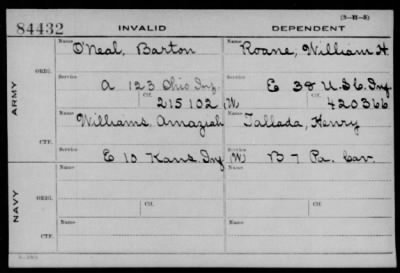 (3-111-5)
84432 INVALID DEPENDENT
Name O'Neal, Barton Name Roane, William H
ARMY
ORIG. Service A 123 Ohio Inf. Service E 38 U.S.C. Inf
Ctf. 215102 (W) Ctf. 420366
Name Williams, Amaziah Name Tallada, Henry
CTF. Service E 10 Kans. Inf (W) Service B 7 Pa. Cav.
Ctf. Ctf.
NAVY
Name Name
ORIG. Service Service
Ctf. Ctf.
Name Name
CTF. Service Service